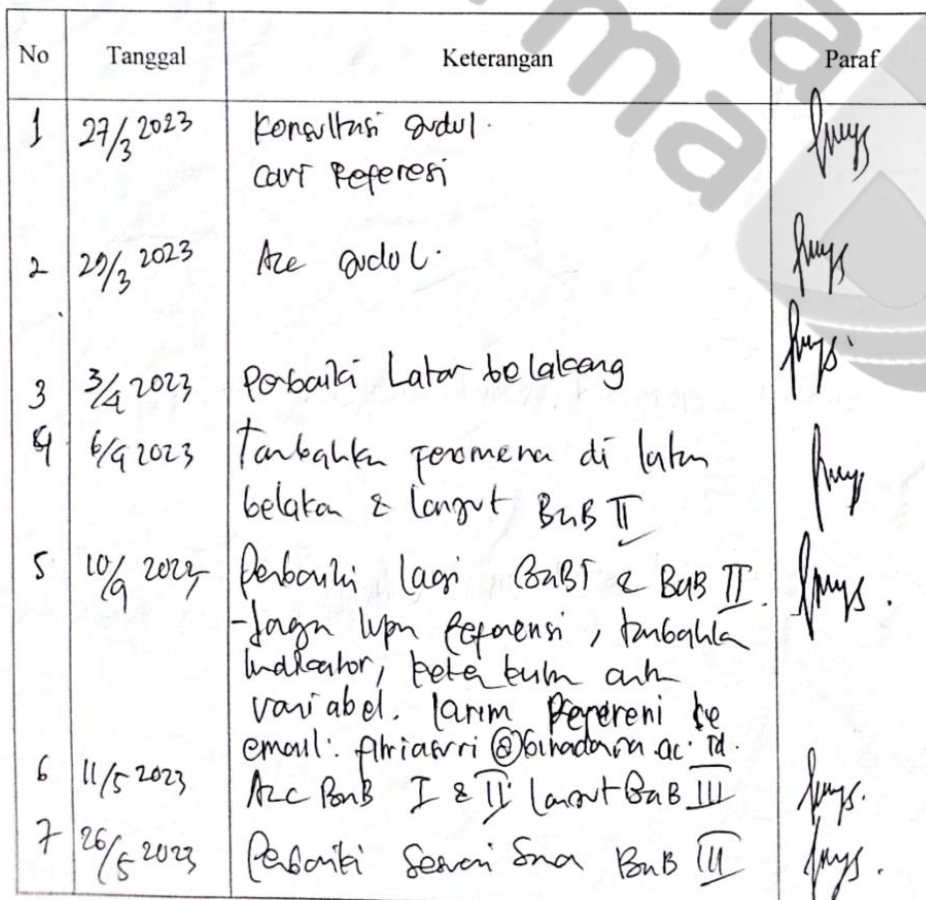 No Tanggal Keterangan Paraf
1 27/3 2023 Konsultasi Judul.
cari Referesi
2 29/3 2023 Acc Judul.
3 3/4 2023 Perbaiki Latar belakang
4 6/4 2023 Tambahka fenomena di latar
belakan & lanjut BaB II
5 10/4 2023 Perbaiki lagi BaB I & BaB II.
- Jagn lupa Referensi, tambahka
Indikator, antr
variabel. ke
email: @binadarma.ac.id.
6 11/5 2023 Acc BaB I & II lanjut BaB III
7 26/5 2023 Perbaiki Sesuai BaB III